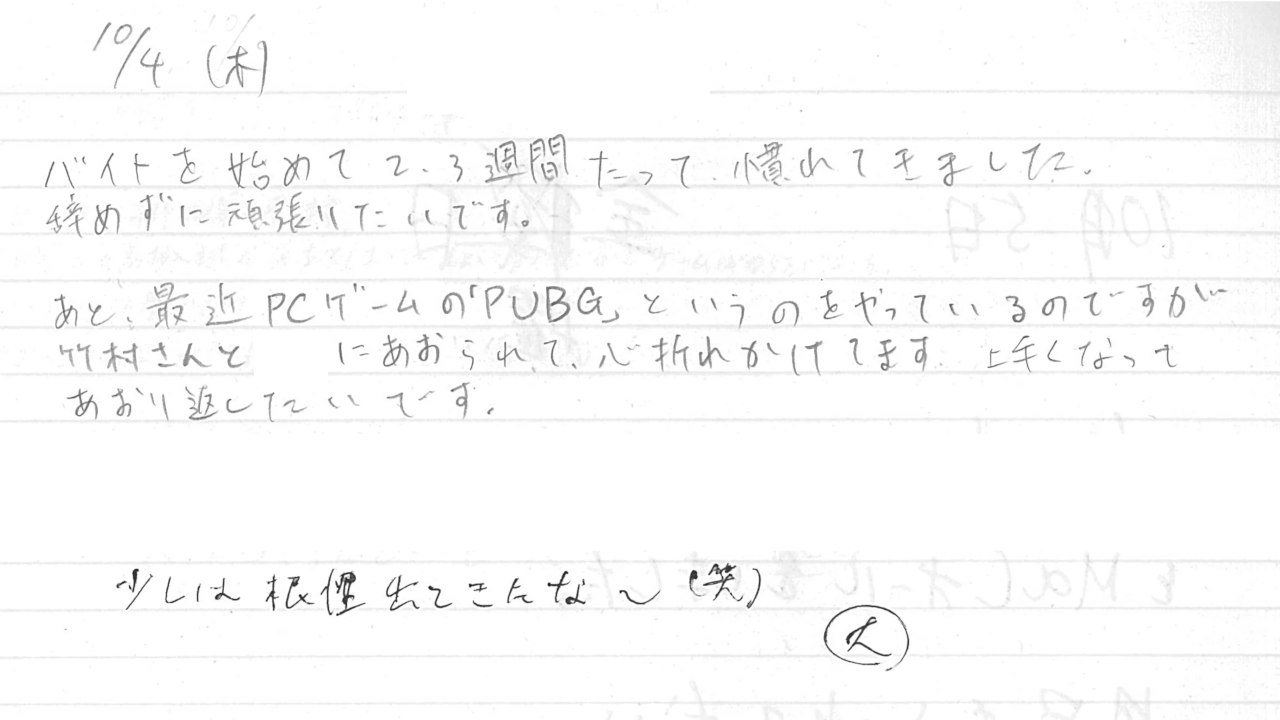 10/4 (木)
バイトを始めて2、3週間たって、慣れてきました。
辞めずに頑張りたいです。
あと、最近PCゲームの「PUBG」というのをやっているのですが
竹村さんと にあおられて、心折れかけてます。上手くなって
あおり返したいです。
少しは根性出てきたな〜(笑)